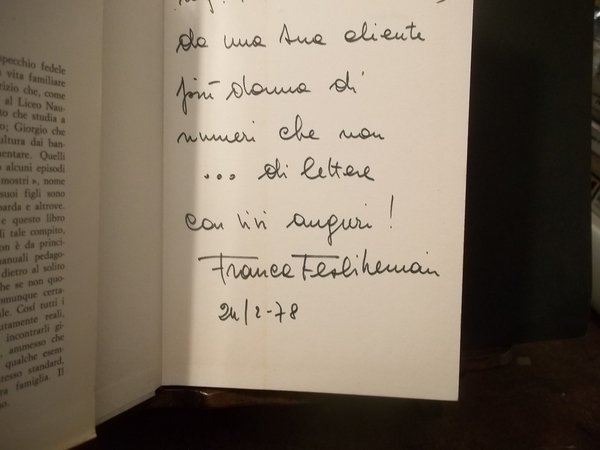 specchio fedele
vita familiare
rizio che, come
al Liceo Nau-
to che studia a
o; Giorgio che
ultura dai ban-
mentare. Quelli
o alcuni episodi
mostri », nome
suoi figli sono
barda e altrove.
e questo libro
di tale compito,
on è da princi-
manuali pedago-
dietro al solito
he se non quo-
omunque certa-
le. Così tutti i
utamente reali,
incontrarli gi-
, ammesso che
qualche esem-
stesso standard,
ra famiglia. Il
no.
da una sua cliente
più donna di
numeri che non
... di lettere
con vivi auguri!
Franca
24/2-78